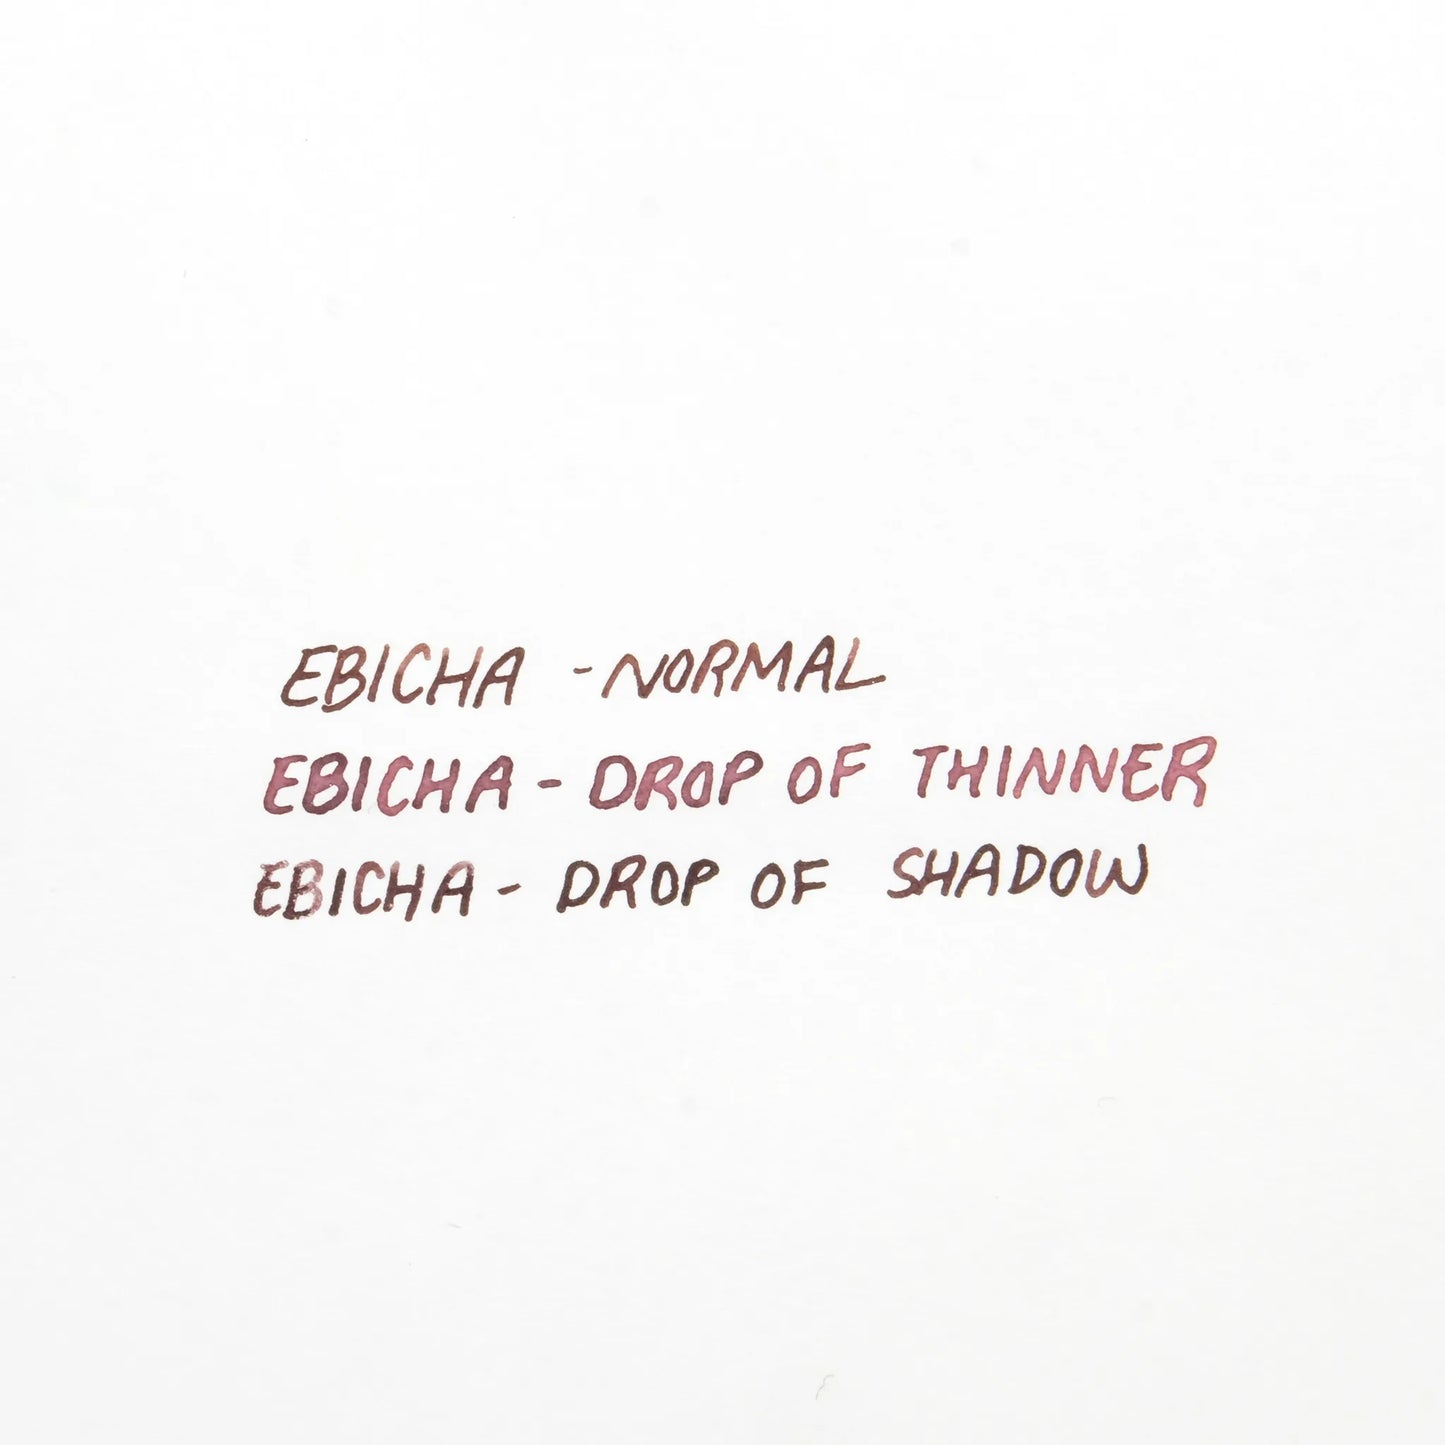 EBICHA -NORMAL
EBICHA - DROP OF THINNER
EBICHA - DROP OF SHADOW